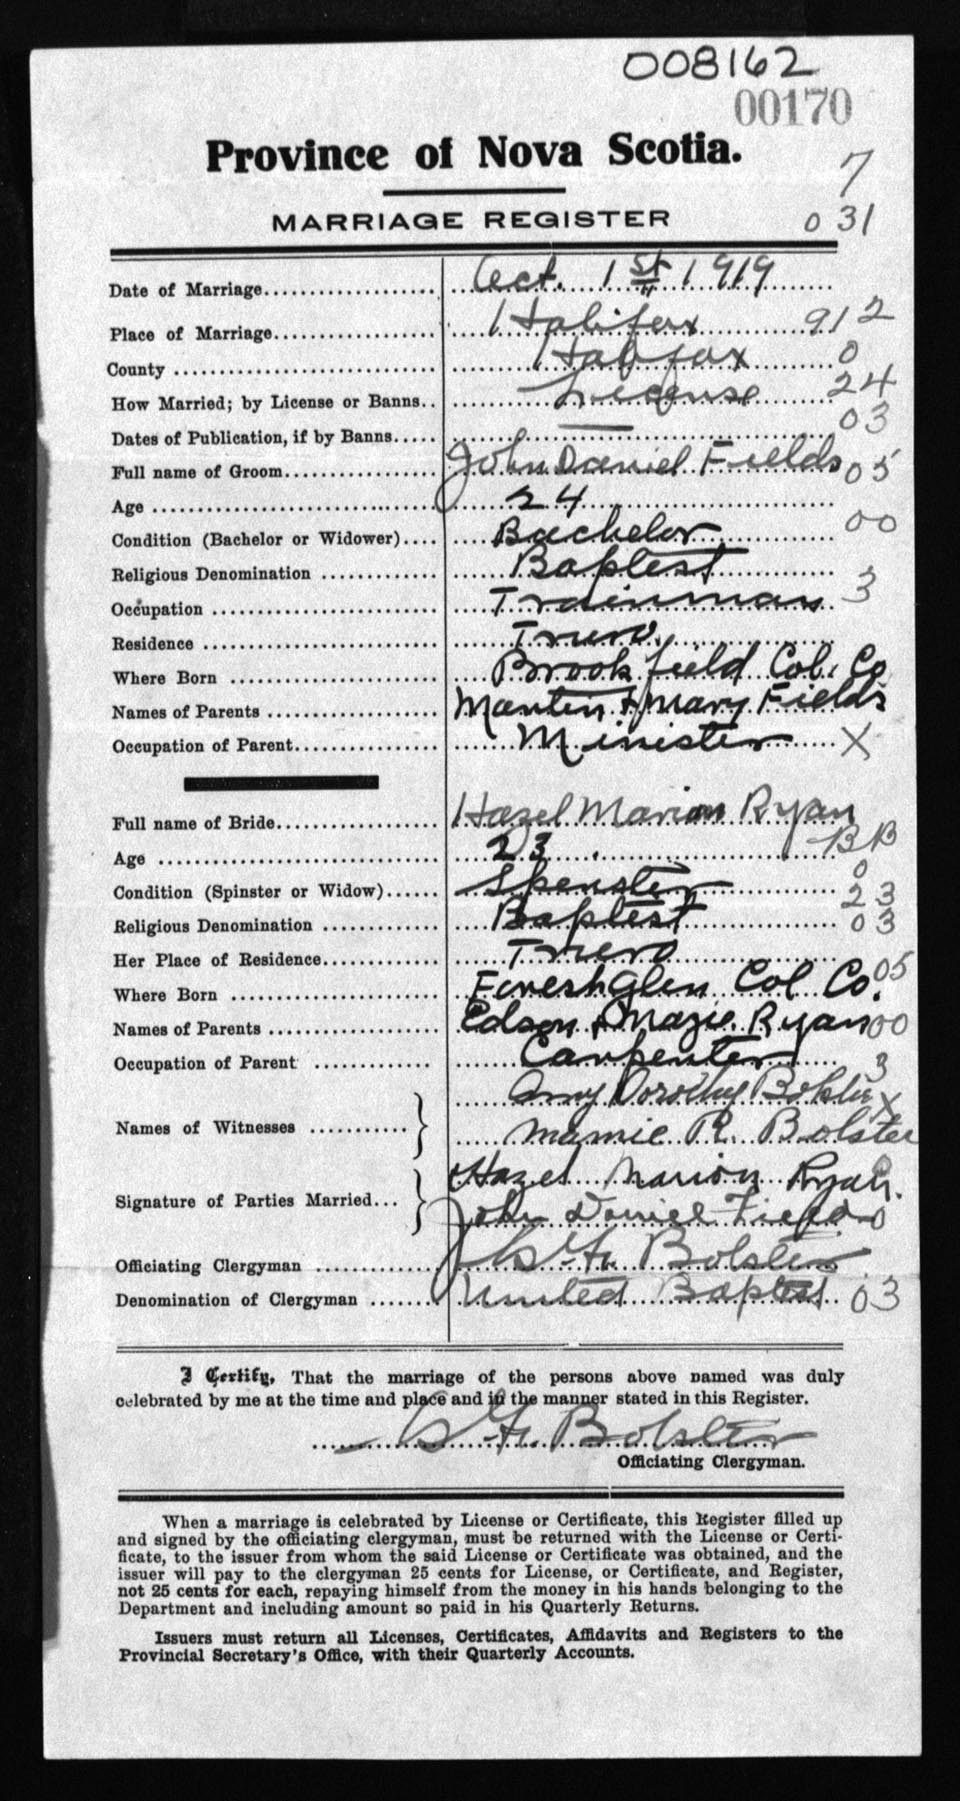 008162
00170
Province of Nova Scotia.
7
MARRIAGE REGISTER 031
Date of Marriage.................... Oct. 1st 1919
Place of Marriage................... Halifax 912
County ............................. Halifax 0
How Married; by License or Banns.. License 24
Dates of Publication, if by Banns..... — 03
Full name of Groom.................. John Daniel Fields 05
Age ................................ 24
Condition (Bachelor or Widower).... Bachelor 00
Religious Denomination ............. Baptest
Occupation ......................... Trainman 3
Residence .......................... Truro.
Where Born ......................... Brookfield Col. Co
Names of Parents ................... Martin & Mary Fields
Occupation of Parent................ Minister X
Full name of Bride.................. Hazel Marion Ryan
Age ................................ 23 BB
0
Condition (Spinster or Widow)...... Spenster 23
Religious Denomination ............. Baptest 03
Her Place of Residence.............. Truro
Where Born ......................... Glen Col Co. 05
Names of Parents ................... Edson & Mazie Ryan 00
Occupation of Parent ............... Carpenter 3
Names of Witnesses ........... } Amy Dorothy Bolster X
Mamie R. Bolster
Signature of Parties Married... } Hazel Marion Ryan.
John Daniel Fields 0
Officiating Clergyman ............. Bolster
Denomination of Clergyman ....... United Baptist 03
I Certify, That the marriage of the persons above named was duly
celebrated by me at the time and place and in the manner stated in this Register.
Bolster
Officiating Clergyman.
When a marriage is celebrated by License or Certificate, this Register filled up
and signed by the officiating clergyman, must be returned with the License or Certi-
ficate, to the issuer from whom the said License or Certificate was obtained, and the
issuer will pay to the clergyman 25 cents for License, or Certificate, and Register,
not 25 cents for each, repaying himself from the money in his hands belonging to the
Department and including amount so paid in his Quarterly Returns.
Issuers must return all Licenses, Certificates, Affidavits and Registers to the
Provincial Secretary's Office, with their Quarterly Accounts.